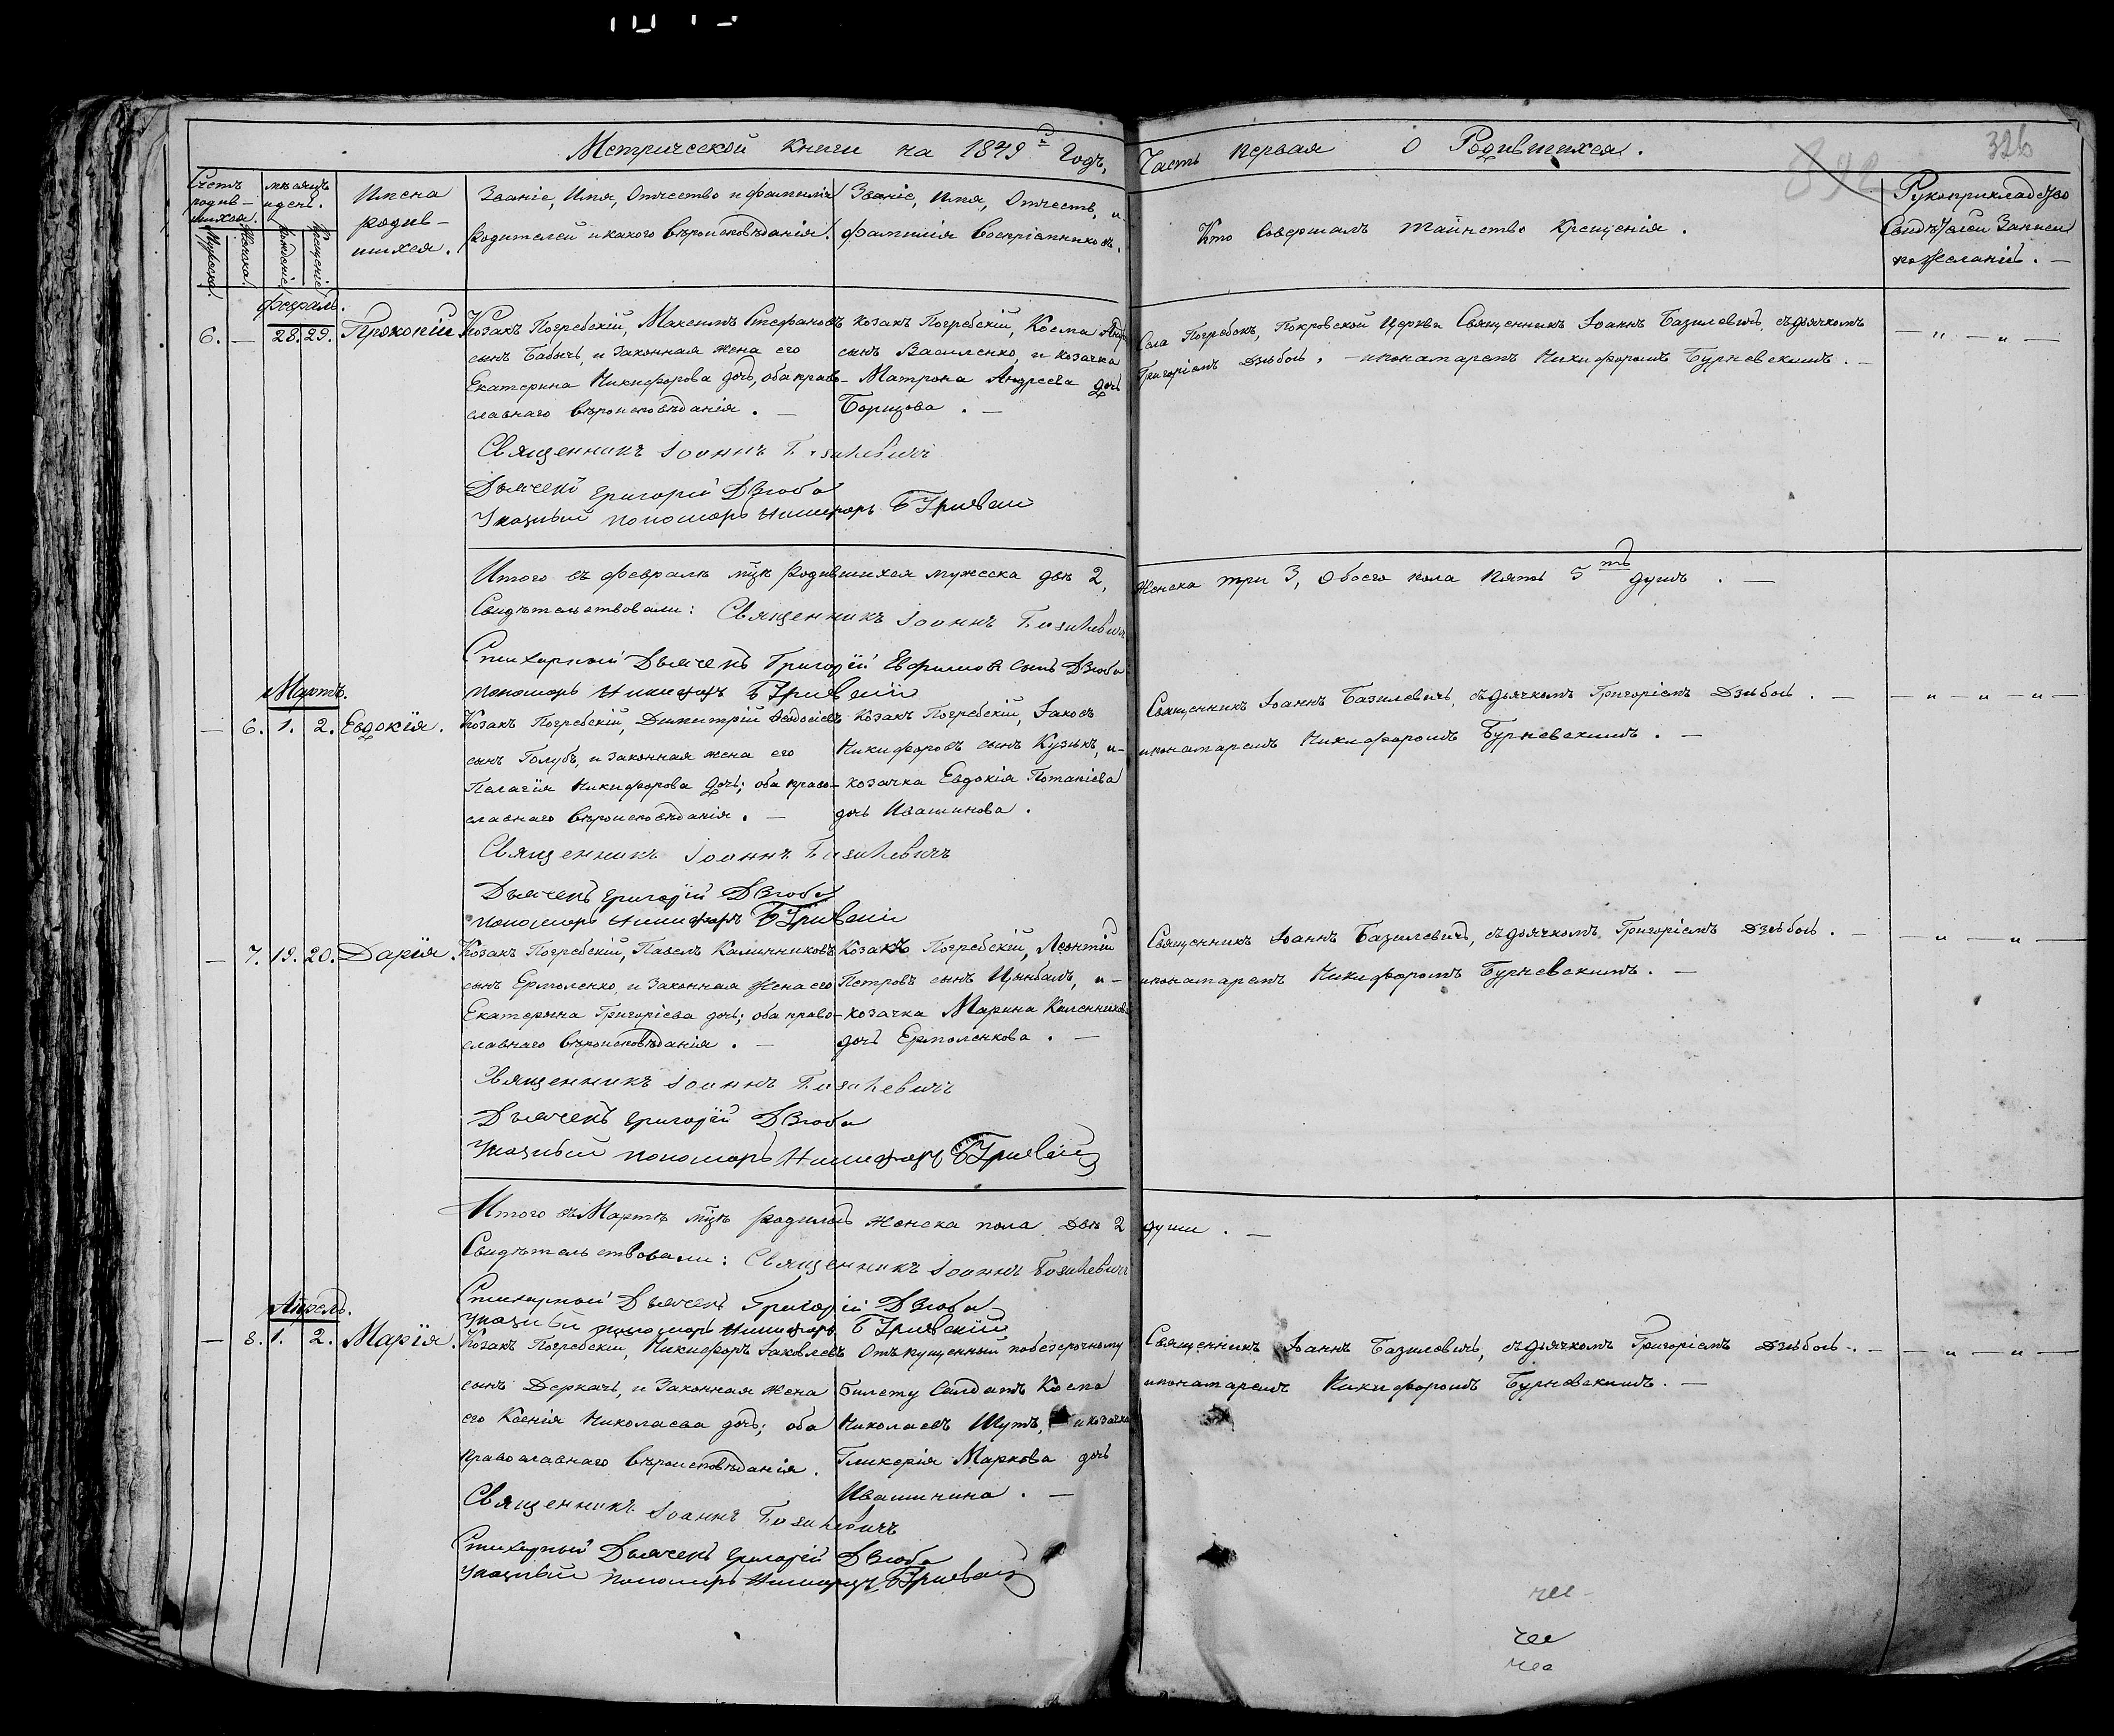 Метрической книги на 1849й Годъ, Часть первая О Родившихся.
326
Счетъ родив-шихся.
Мужеска.
Женска.
мѣсяцъ и день.
Рожденія
Крещенія
Имена родив-шихся.
Званіе, Имя, Отчество и фамилія
Родителей и какого вѣроисповѣданія.
Званіе, имя, Отчество, и
фамилія Воспріемниковъ.
Кто Совершалъ таинство крещенія.
Рукоприкладство
Свидѣтелей Записи
по Желанію. —
Февраль.
6. — 28. 29. Прокопій.
Козакъ Погребскій, Максимъ Стефановъ
сынъ Бабычъ, и Законная жена его
Екатерина Никифорова дочь, оба право-
славнаго вѣроисповѣданія. —
козакъ Погребскій, Косма Андр
сынъ Василенко, и козачка
Матрона Андреева дочь
Борщова. —
Села Погребокъ, Покровской Церкви Священникъ Іоаннъ Базилевичъ, съ дьячкомъ
Григоріемъ Дзюбою, — и пономаремъ Никифоромъ Бурневскимъ. —
Священникъ Іоаннъ Базилевичъ
Дьячекъ Григорій Дзюба
Указный пономарь Никифоръ
Итого въ Февралѣ мцѣ родившихся мужеска двѣ 2, Женска три 3, Обоего пола пять 5ть душъ. —
Свидѣтельствовали: Священникъ Іоаннъ Базилевичъ
Стихарный Дьячекъ Григорій Ефимовъ сынъ Дзюба
пономарь Никифоръ
Мартъ.
— 6. 1. 2. Евдокія.
Козакъ Погребскій, Димитрій Феодосіевъ
сынъ Голубъ, и законная жена его
Пелагія Никифорова дочь; оба право-
славнаго вѣроисповѣданія. —
Козакъ Погребскій, Іаковъ
Никифоровъ сынъ Кузькъ, и-
козачка Евдокія Потапіева
дочь Ивашинова.
Священникъ Іоаннъ Базилевичъ, съ дьячкомъ Григоріемъ Дзюбою. —
и пономаремъ Никифоромъ Бурневскимъ. —
Священникъ Іоаннъ Базилевичъ
Дьячекъ Григорій Дзюба
пономарь Никифоръ
— 7. 19. 20. Дарія.
Козакъ Погребскій, Павелъ Калинниковъ
сынъ Ермоленко, и Законная жена его
Екатерина Григоріева дочь; оба право-
славнаго вѣроисповѣданія. —
Козакъ Погребскій, Леонтій
Петровъ сынъ Цымбалъ, и-
козачка Марина Калинникова
дочь Ермоленкова. —
Священникъ Іоаннъ Базилевичъ, съ дьячкомъ Григоріемъ Дзюбою. —
и пономаремъ Никифоромъ Бурневскимъ. —
Священникъ Іоаннъ Базилевичъ
Дьячекъ Григорій Дзюба
Указный пономарь Никифоръ
Итого въ Мартѣ мцѣ родилось женска пола двѣ 2 души. —
Свидѣтельствовали: Священникъ Іоаннъ Базилевичъ
Стихарный Дьячекъ Григорій Дзюба
Указный пономарь Никифоръ
Апрель.
— 8. 1. 2. Марія.
Козакъ Погребскій, Никифоръ Іаковлевъ
сынъ Деркачъ, и Законная жена
его Ксенія Николаева дочь; оба
православнаго вѣроисповѣданія.
Отпущенный по безсрочному
билету Солдатъ Косма
Николаевъ Шутъ, и козачка
Гликерія Маркова дочь
Ивашинина. —
Священникъ Іоаннъ Базилевичъ, съ дьячкомъ Григоріемъ Дзюбою. —
и пономаремъ Никифоромъ Бурневскимъ. —
Священникъ Іоаннъ Базилевичъ
Стихарный Дьячекъ Григорій Дзюба
Указный пономарь Никифоръ